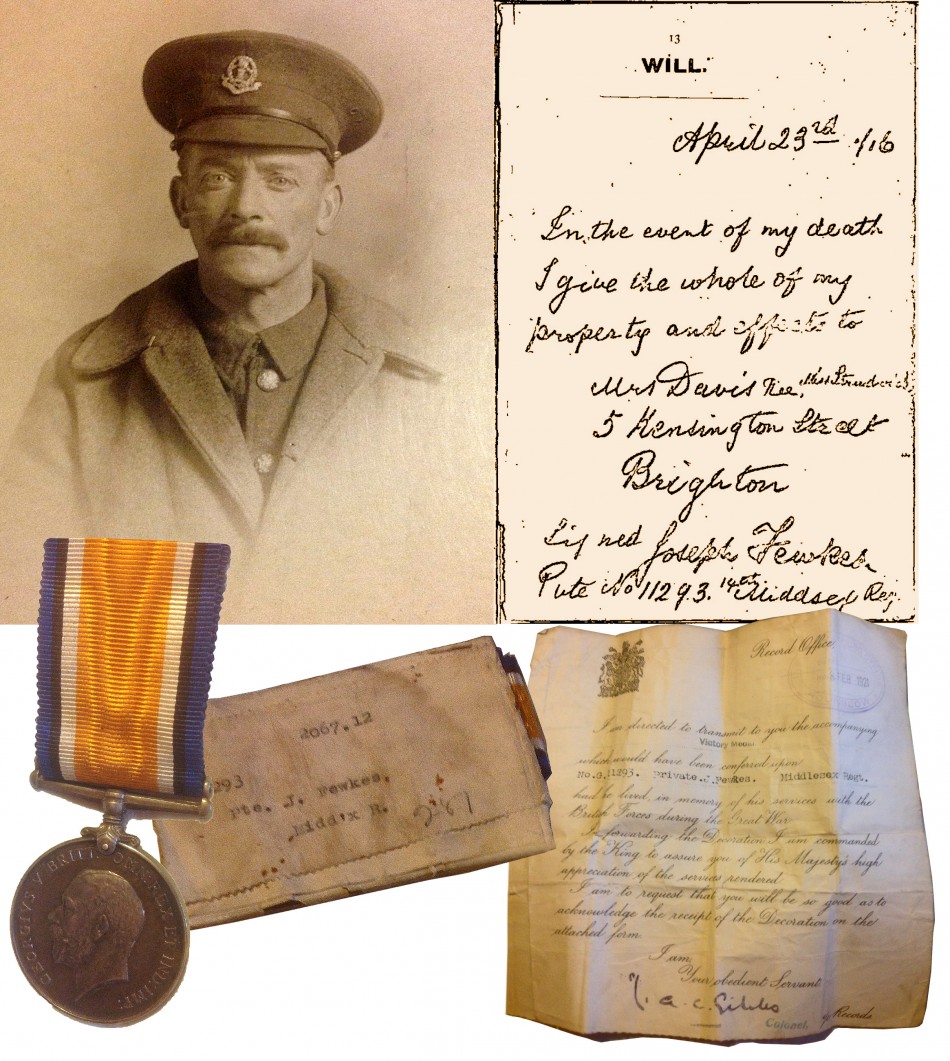 13
WILL.
April 23rd /16
In the event of my death
I give the whole of my
property and effects to
Mrs Davis Nee, Miss
5 Kensington Street
Brighton
Signed Joseph Fewkes.
Pvte No 11293. 14th Middsex Reg.
GEORGIVS V BRITT: OMN: REX ET IND: IMP:
2067.12
293
Pte. J. Fewkes.
Midd'x R. 267
Record Office,
FEB 1921
I am directed to transmit to you the accompanying
Victory Medal
which would have been conferred upon
No.G.11293. Private.J.Fewkes. Middlesex Regt.
had he lived, in memory of his services with the
British Forces during the Great War.
In forwarding the Decoration I am commanded
by the King to assure you of His Majesty's high
appreciation of the services rendered.
I am to request that you will be so good as to
acknowledge the receipt of the Decoration on the
attached form.
I am,
Your obedient Servant
Colonel
Records